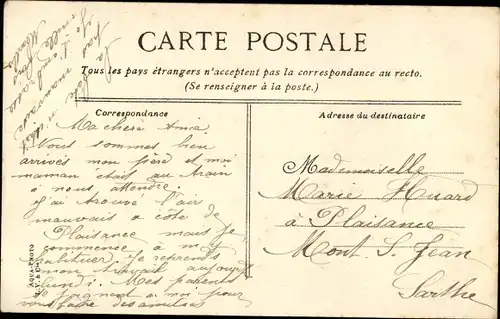 CARTE POSTALE
Tous les pays étrangers n'acceptent pas la correspondance au recto.
(Se renseigner à la poste.)
Correspondance
Ma chère Amie
Nous sommes bien
arrivés mon père et moi
maman était au train
à nous attendre.
J'ai trouvé l'air
mauvais a côte de
Plaisance mais je
commence à m'y
habituer. Je reprends
mon travail aujourd
lundi. Mes parents
se joignent a moi pour
vous faire des amitiés
Adresse du destinataire
Mademoiselle
Marie Huard
à Plaisance
Mont S. Jean
Sarthe
AQUA-PHOTO